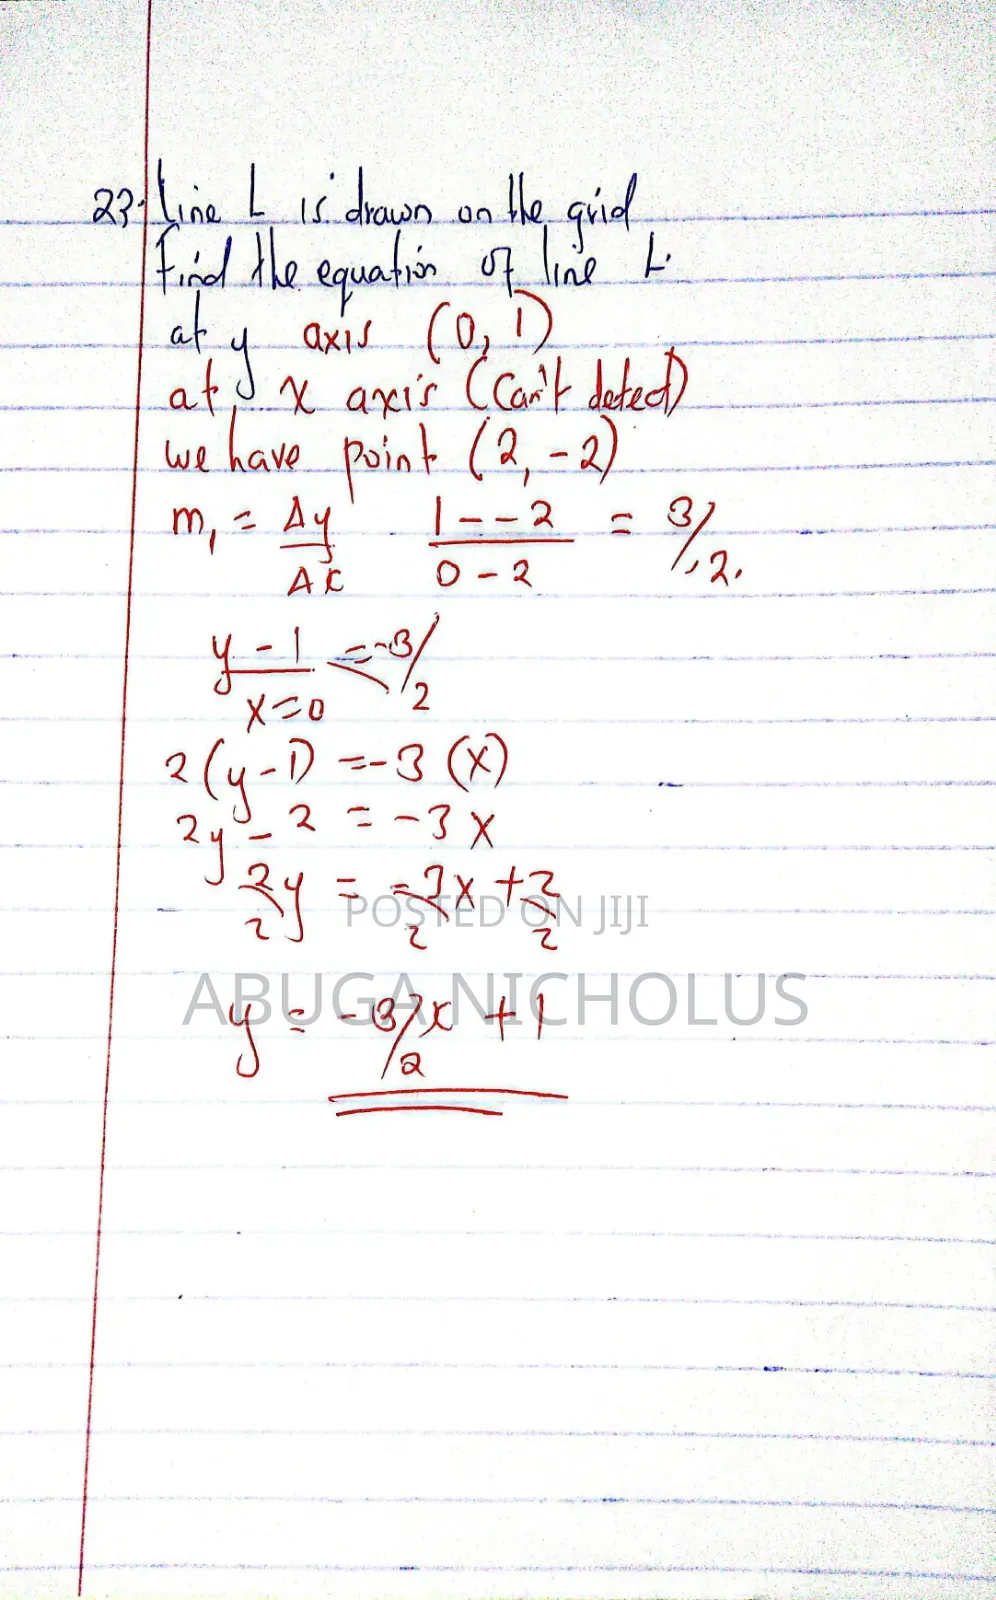 23. Line L is drawn on the grid
Find the equation of line L.
at y axis (0, 1)
at x axis (Can't detect)
we have point (2, -2)
m₁ = Δy/Δx 1 - -2/0 - 2 = 3/-2.
y - 1/x = 0 = -3/2
2(y-1) = -3(x)
2y - 2 = -3x
2y/2 = -3x/2 + 2/2
POSTED ON JIJI
ABUGA NICHOLUS
y = -3/2x + 1